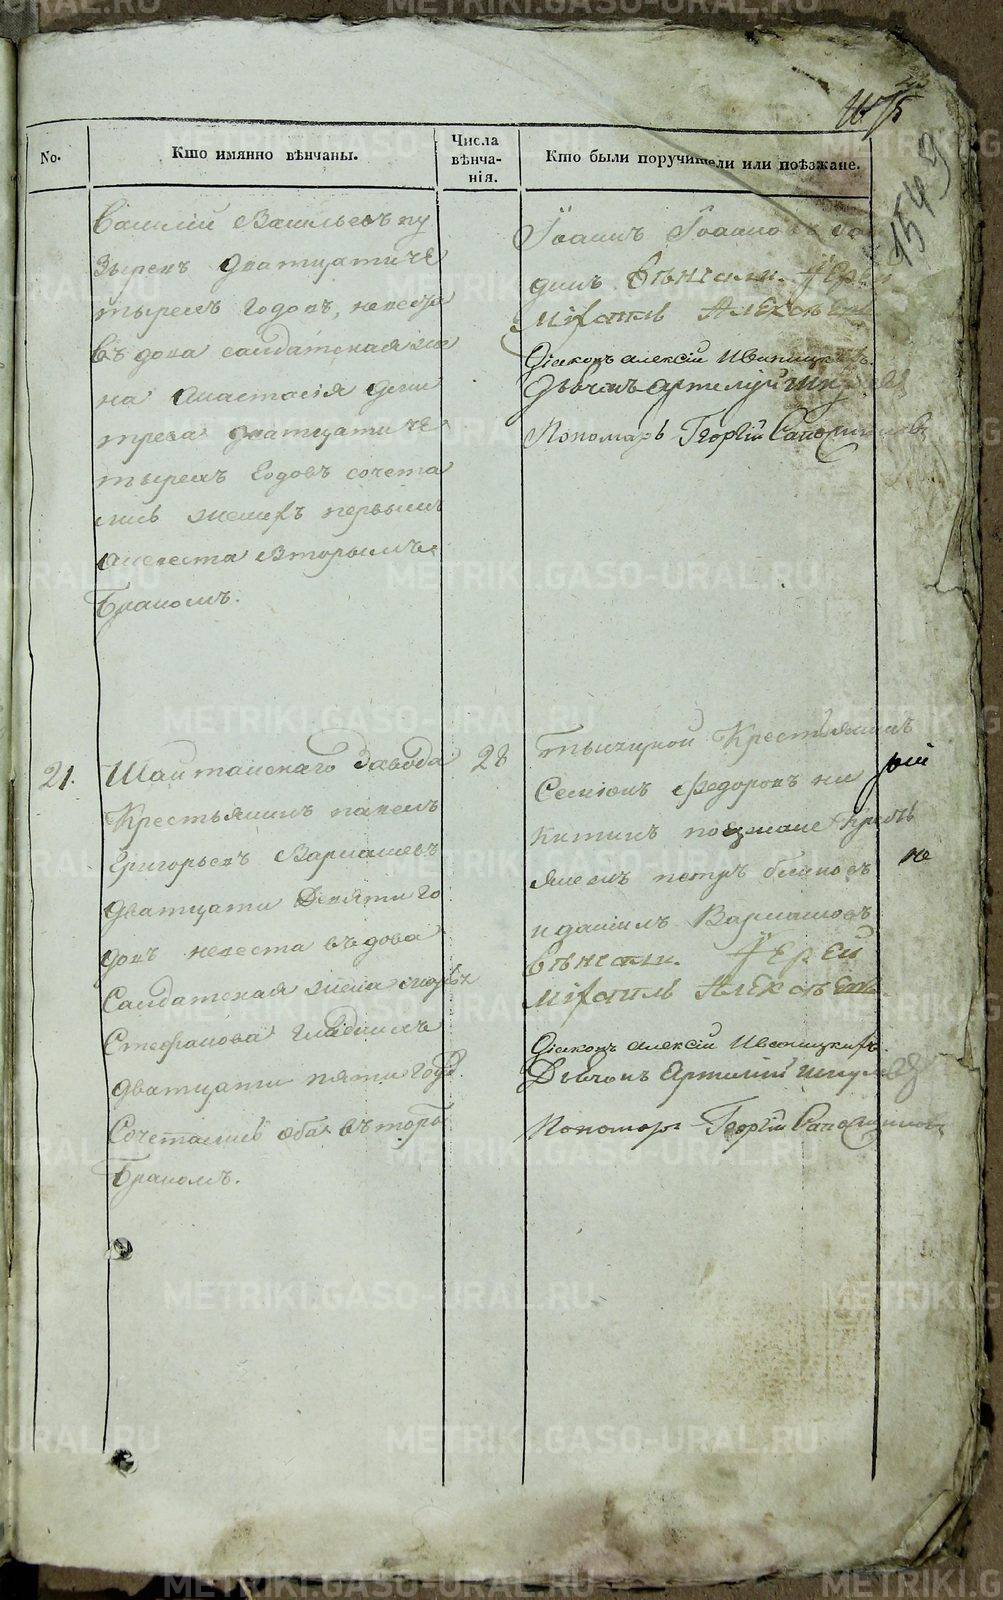 1549
No.
Кто имянно вѣнчаны.
Числа
вѣнча-
нія.
Кто были поручители или поѣзжане.
Василій Васильевъ пу
зыревъ дватцатиче
тырехъ годовъ, невеста
въдова салдатская же
на Анастасія дми
трева дватцатиче
тырехъ годовъ сочета
лись женихъ первымъ
аневеста вторымъ
Бракомъ.
Іоаннъ Іоанновъ
Вѣнчали. Іерей
Михаилъ Алексѣевъ
Діаконъ алексій Ивановицкихъ
Дьячекъ Артемій
Пономарь Георгій Сапожниковъ
21.
Шайтанскаго Завода
Крестьянинъ павелъ
Григорьевъ Варлашевъ
дватцати Девяти го
довъ невеста въдова
Салдатская жена
Стефанова
дватцати пяти годъ
Сочетались оба въторы
Бракомъ.
28
Крестьянинъ
Семіонъ Федоровъ ни
китинъ поезжане Крестъ
янехъ петръ блиновъ
иданилъ Варлашовъ
вѣнчали. Іерей
Михаилъ Алексѣевъ
Діаконъ алексій Ивановицкихъ
Дьячокъ Артемій
Пономарь Георгій Сапожниковъ
METRIKI.GASO-URAL.RU